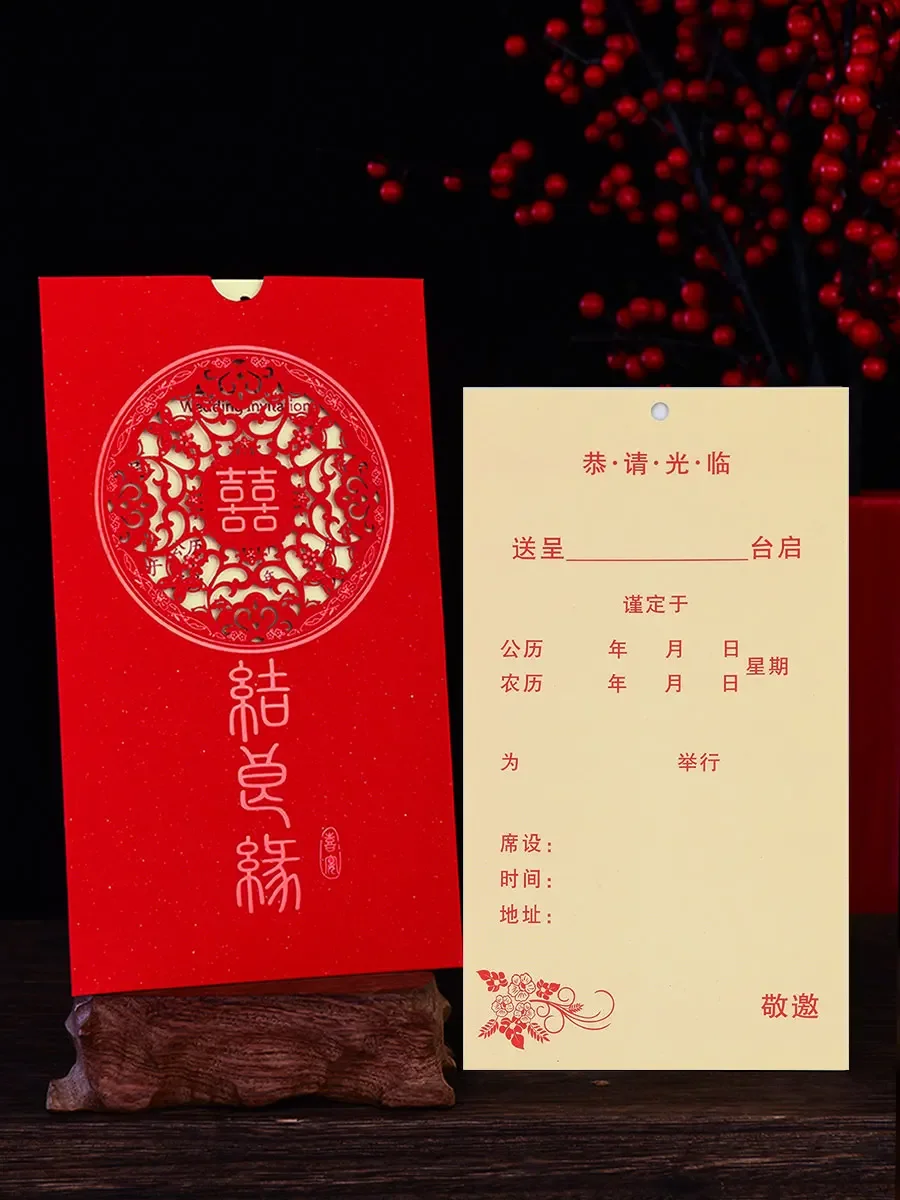 Wedding Invitation
囍
公历
于
年
結
良
緣
喜宴
恭·请·光·临
送呈____________台启
谨定于
公历 年 月 日
星期
农历 年 月 日
为 举行
席设:
时间:
地址:
敬邀